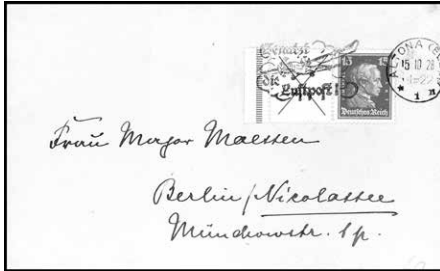 Benutzt
die
Luftpost!
15 15
Deutsches Reich
ALTONA (ELBE)
15.10.26
1 n
Frau Major Maessen
Berlin/Nicolassee
Münchowstr. 1p.